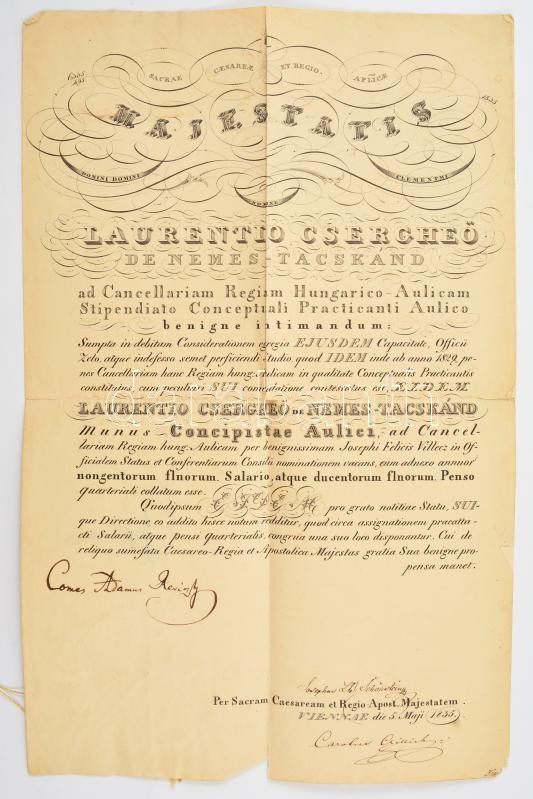 SACRAE CÆSAREÆ ET REGIO- APLICÆ
6355
495.
1835
MAJESTATIS
DOMINI DOMINI CLEMENTMI
NOMNE
LAURENTIO CSERGHEÖ
DE NEMES-TACSKÁND
ad Cancellariam Regiam Hungarico-Aulicam
Stipendiato Conceptuali Practicanti Aulico
benigne intimandum:
Sumpta in debitam Considerationem egregia EJUSDEM Capacitate, Officii
Zelo, atque indefesso semet perficiendi studio, quod IDEM inde ab anno 1829, pe-
nes Cancellariam hanc Regiam hung. Aulicam in qualitate Conceptualis Practicantis
constitutus, cum peculiari SUI comendatione contestatus est, EIDEM
LAURENTIO CSERGHEÖ DE NEMES-TACSKÁND
Munus Concipistae Aulici, ad Cancel-
lariam Regiam hung. Aulicam per benignissimam Josephi Felicis Villecz in Of-
ficialem Status et Conferentiarum Consilii nominationem vacans, cum adnexo annuor
nongentorum flnorum. Salario, atque ducentorum flnorum. Penso
quarteriali collatum esse.
Quodipsum pro grato notitiae Statu, SUI-
que Directione, eo addito hisce notum redditur, quod circa assignationem praeatta-
cti Salarii, atque pensi quarterialis, congrua uno suo loco disponantur. Cui de
reliquo sumefata Caesareo-Regia et Apostolica Majestas gratia Sua benigne pro-
pensa manet.
Comes Adamus Reviczky
Josephus
Per Sacram Caesaream et Regio Apost. Majestatem.
VIENNAE die 5. Maji 1835.
Carolus
darabanth